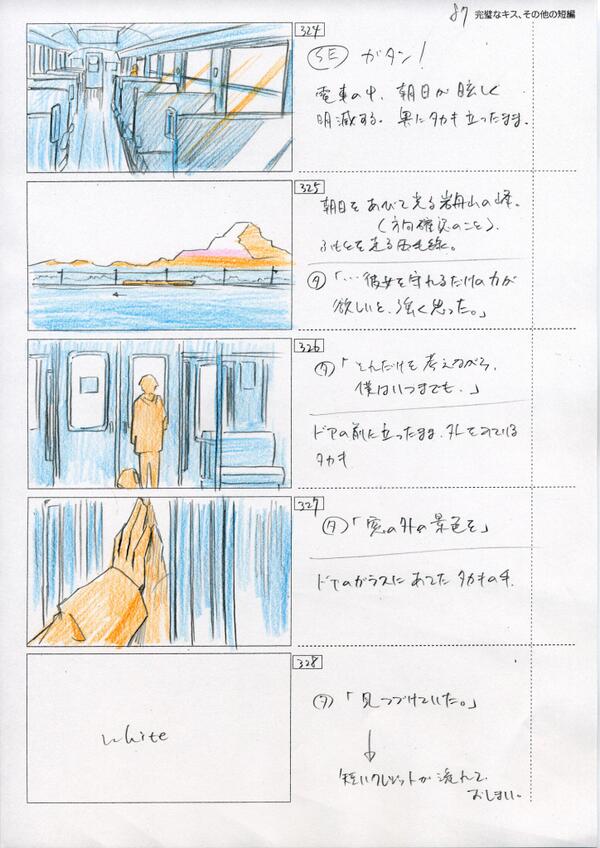 87 完璧なキス、その他の短編
324
SE ガタン!
電車の中、朝日が眩しく
明滅する。奥にタカキ立ったまま。
325
朝日をあびて光る岩舟山の峰。
(方向確認のこと)。
ふもとを走る両毛線。
タ 「…彼女を守れるだけの力が
欲しいと、強く思った。」
326
タ 「それだけを考えながら、
僕はいつまでも。」
ドアの前に立ったまま、外をみている
タカキ
327
タ 「窓の外の景色を」
ドアのガラスにあてたタカキの手。
328
white
タ 「見つづけていた。」
↓
短いクレジットが流れて
おしまい。